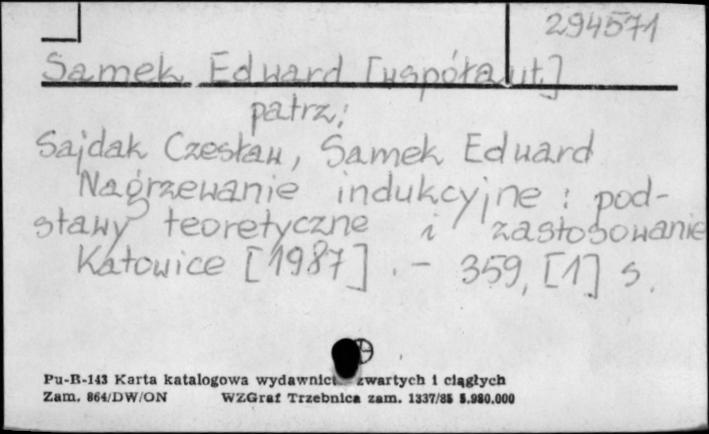 294571
Samek Edward [współaut.]
patrz:
Sajdak Czesław, Samek Edward
Nagrzewanie indukcyjne : pod-
stawy teoretyczne i zastosowanie
Katowice [1987] . - 359, [1] s.
Pu-B-143 Karta katalogowa wydawnict zwartych i ciągłych
Zam. 864/DW/ON WZGraf Trzebnica zam. 1337/85 5.980.000